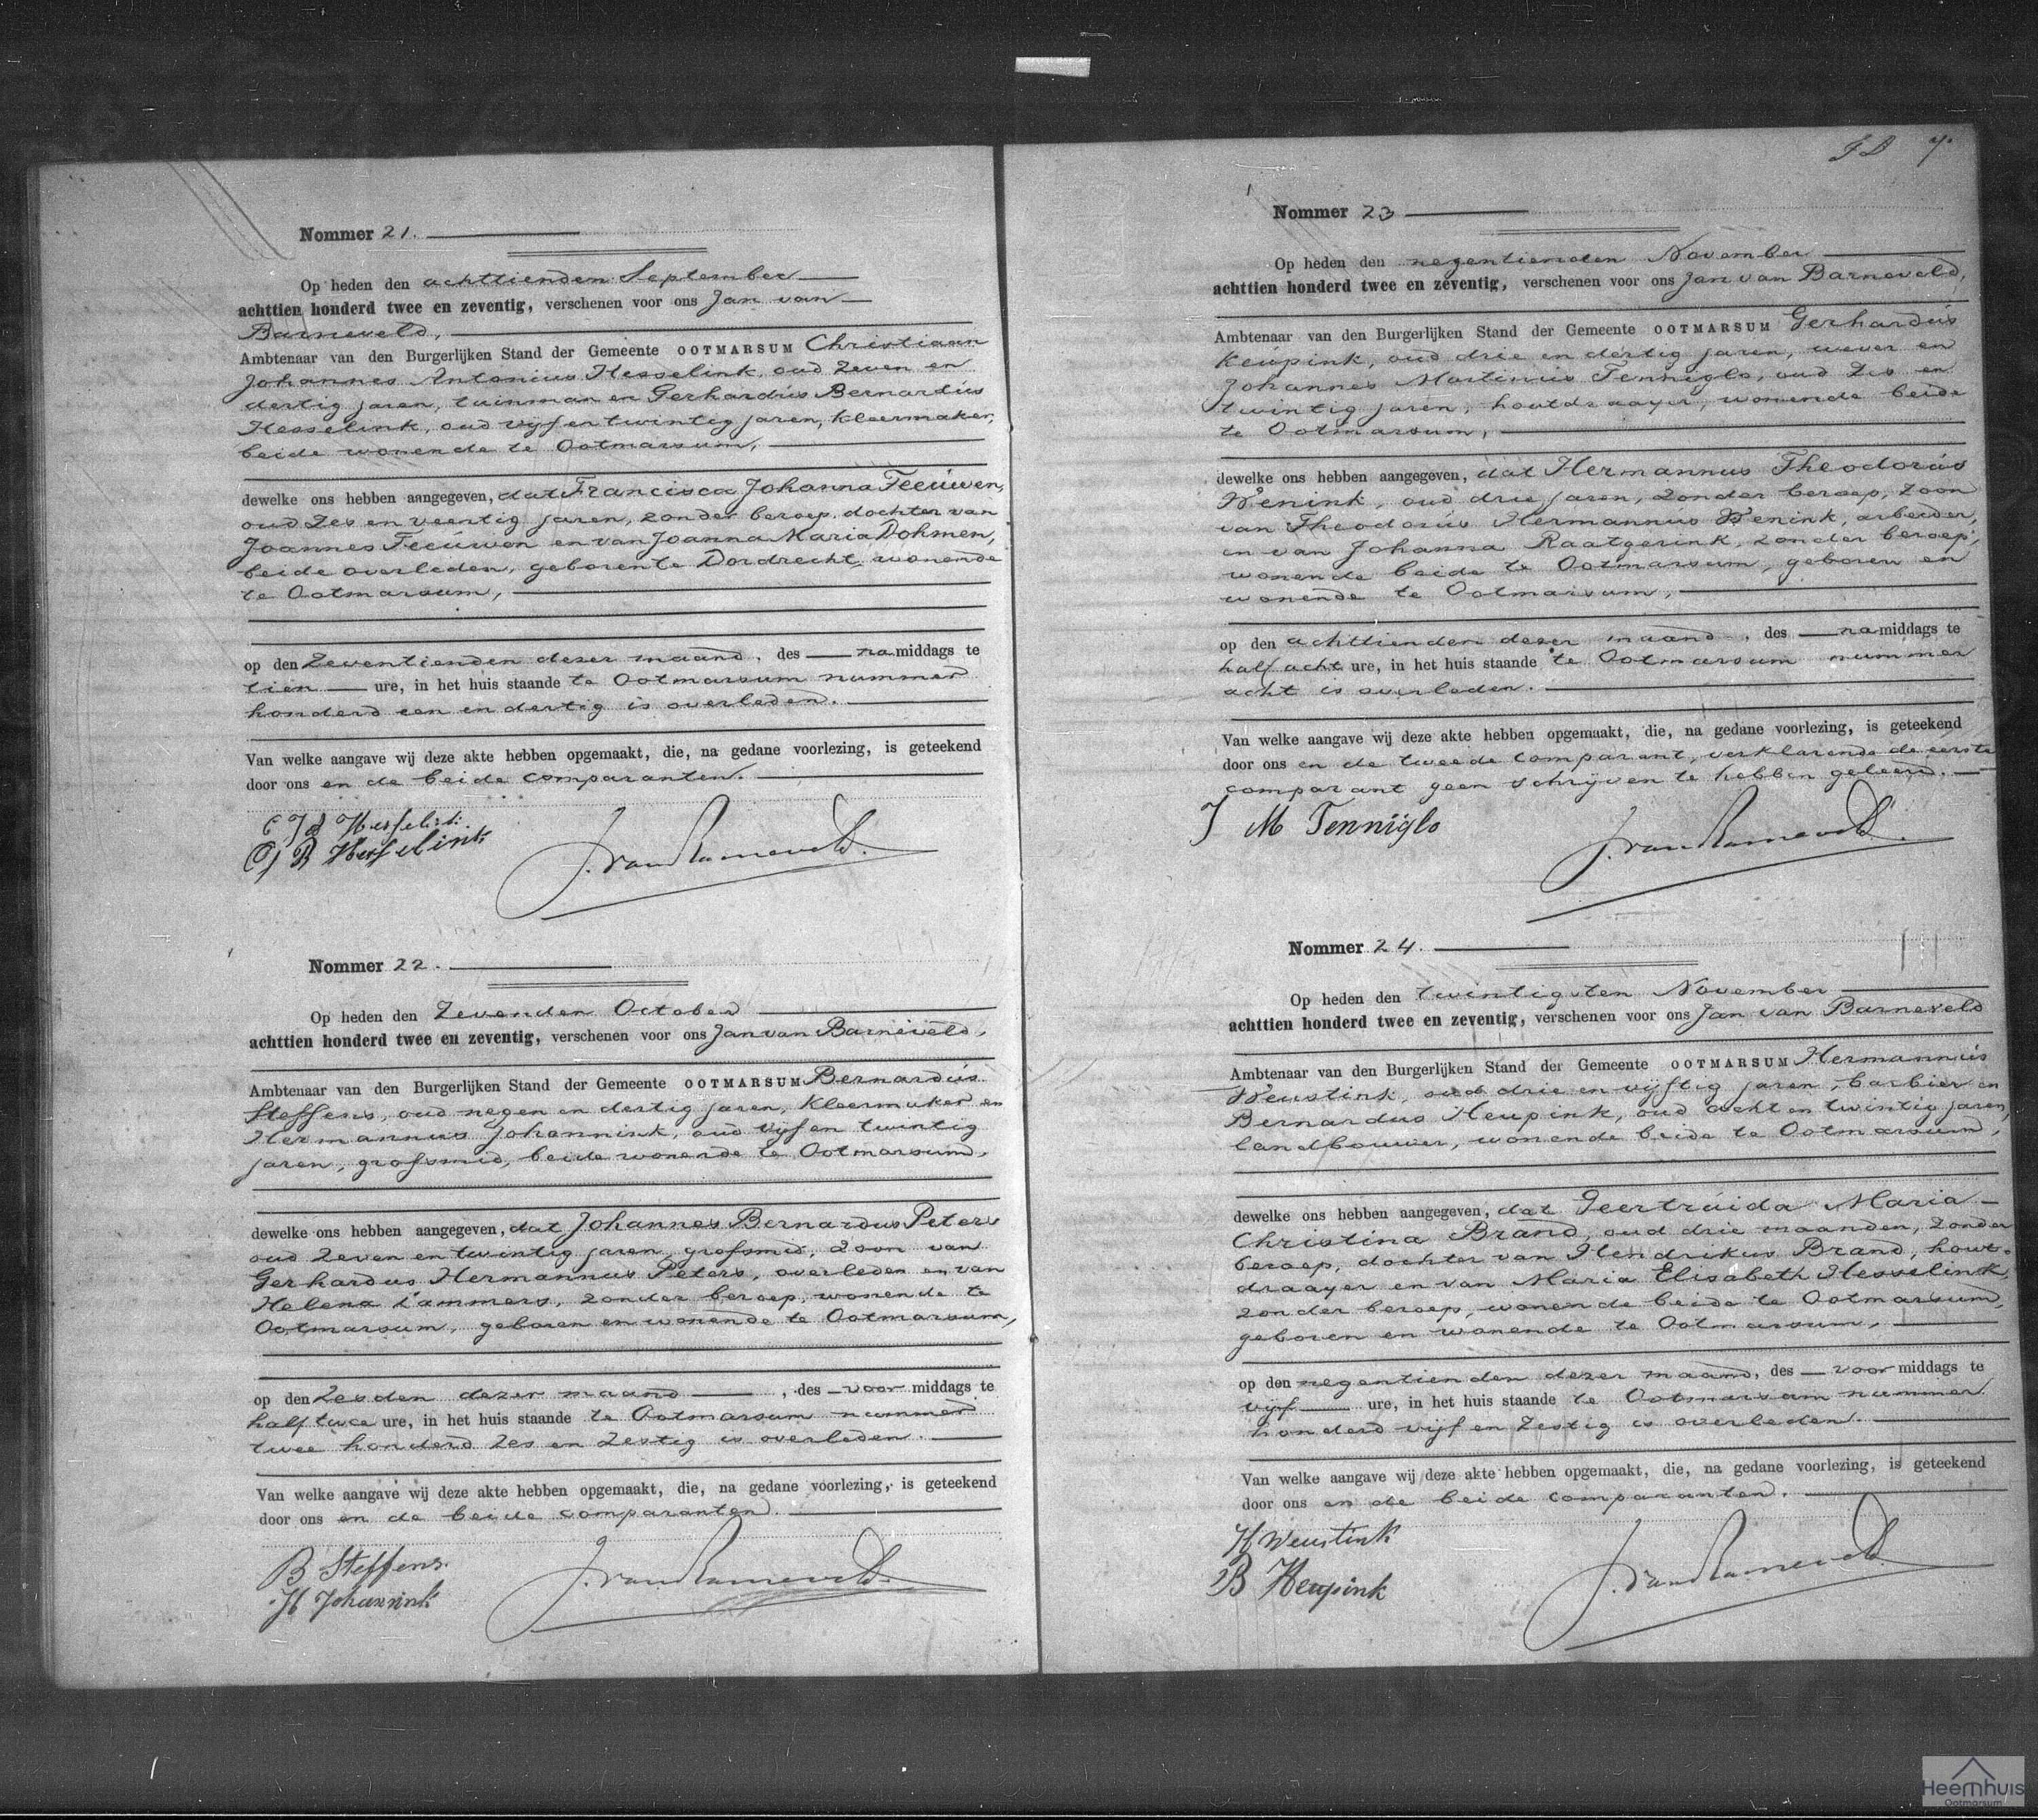 Nommer 21.
Op heden den achttienden September
achttien honderd twee en zeventig, verschenen voor ons Jan van
Barneveld,
Ambtenaar van den Burgerlijken Stand der Gemeente OOTMARSUM Christiaan
Johannes Antonius Hesselink, oud zeven en
dertig jaren, tuinman en Gerhardus Bernardus
Hesselink, oud vijf en twintig jaren, kleermaker,
beide wonende te Ootmarsum,
dewelke ons hebben aangegeven, dat Francisca Johanna Teeuwen,
oud zes en veertig jaren, zonder beroep, dochter van
Joannes Teeuwen en van Joanna Maria Dohmen,
beide overleden, geboren te Dordrecht, wonende
te Ootmarsum,
op den zeventienden dezer maand, des namiddags te
tien ure, in het huis staande te Ootmarsum nummer
honderd een en dertig is overleden.
Van welke aangave wij deze akte hebben opgemaakt, die, na gedane voorlezing, is geteekend
door ons en de beide comparanten.
Hesselink
G B Hesselink
J. van Barneveld.
Nommer 22.
Op heden den zevenden October
achttien honderd twee en zeventig, verschenen voor ons Jan van Barneveld,
Ambtenaar van den Burgerlijken Stand der Gemeente OOTMARSUM Bernardus
Steffens, oud negen en dertig jaren, kleermaker en
Hermannus Johannink, oud vijf en twintig
jaren, grofsmid, beide wonende te Ootmarsum,
dewelke ons hebben aangegeven, dat Johannes Bernardus Peters
oud zeven en twintig jaren, grofsmid, zoon van
Gerhardus Hermannus Peters, overleden en van
Helena Lammers, zonder beroep, wonende te
Ootmarsum, geboren en wonende te Ootmarsum,
op den zesden dezer maand, des voormiddags te
half twee ure, in het huis staande te Ootmarsum nummer
twee honderd zes en zestig is overleden.
Van welke aangave wij deze akte hebben opgemaakt, die, na gedane voorlezing, is geteekend
door ons en de beide comparanten.
B Steffens.
H Johannink
J. van Barneveld.
7.
Nommer 23
Op heden den negentienden November
achttien honderd twee en zeventig, verschenen voor ons Jan van Barneveld,
Ambtenaar van den Burgerlijken Stand der Gemeente OOTMARSUM Gerhardus
Keupink, oud drie en dertig jaren, wever en
Johannes Martinus Tenniglo, oud zes en
twintig jaren, houtdraayer, wonende beide
te Ootmarsum,
dewelke ons hebben aangegeven, dat Hermannus Theodorus
Wenink, oud drie jaren, zonder beroep, zoon
van Theodorus Hermannus Wenink, arbeider,
en van Johanna Raatgerink, zonder beroep,
wonende beide te Ootmarsum, geboren en
wonende te Ootmarsum,
op den achttienden dezer maand, des namiddags te
half acht ure, in het huis staande te Ootmarsum nummer
acht is overleden.
Van welke aangave wij deze akte hebben opgemaakt, die, na gedane voorlezing, is geteekend
door ons en de tweede comparant, verklarende de eerste
comparant geen schrijven te hebben geleerd.
J M Tenniglo
J. van Barneveld.
Nommer 24.
Op heden den twintigsten November
achttien honderd twee en zeventig, verschenen voor ons Jan van Barneveld
Ambtenaar van den Burgerlijken Stand der Gemeente OOTMARSUM Hermannus
Weustink, oud drie en vijftig jaren, barbier en
Bernardus Heupink, oud acht en twintig jaren,
landbouwer, wonende beide te Ootmarsum,
dewelke ons hebben aangegeven, dat Geertruida Maria
Christina Brand, oud drie maanden, zonder
beroep, dochter van Hendrikus Brand, hout-
draayer en van Maria Elisabeth Hesselink,
zonder beroep, wonende beide te Ootmarsum,
geboren en wonende te Ootmarsum,
op den negentienden dezer maand, des voormiddags te
vijf ure, in het huis staande te Ootmarsum nummer
honderd vijf en zestig is overleden.
Van welke aangave wij deze akte hebben opgemaakt, die, na gedane voorlezing, is geteekend
door ons en de beide comparanten.
H Weustink
B Heupink
J. van Barneveld.
Heemhuis
Ootmarsum